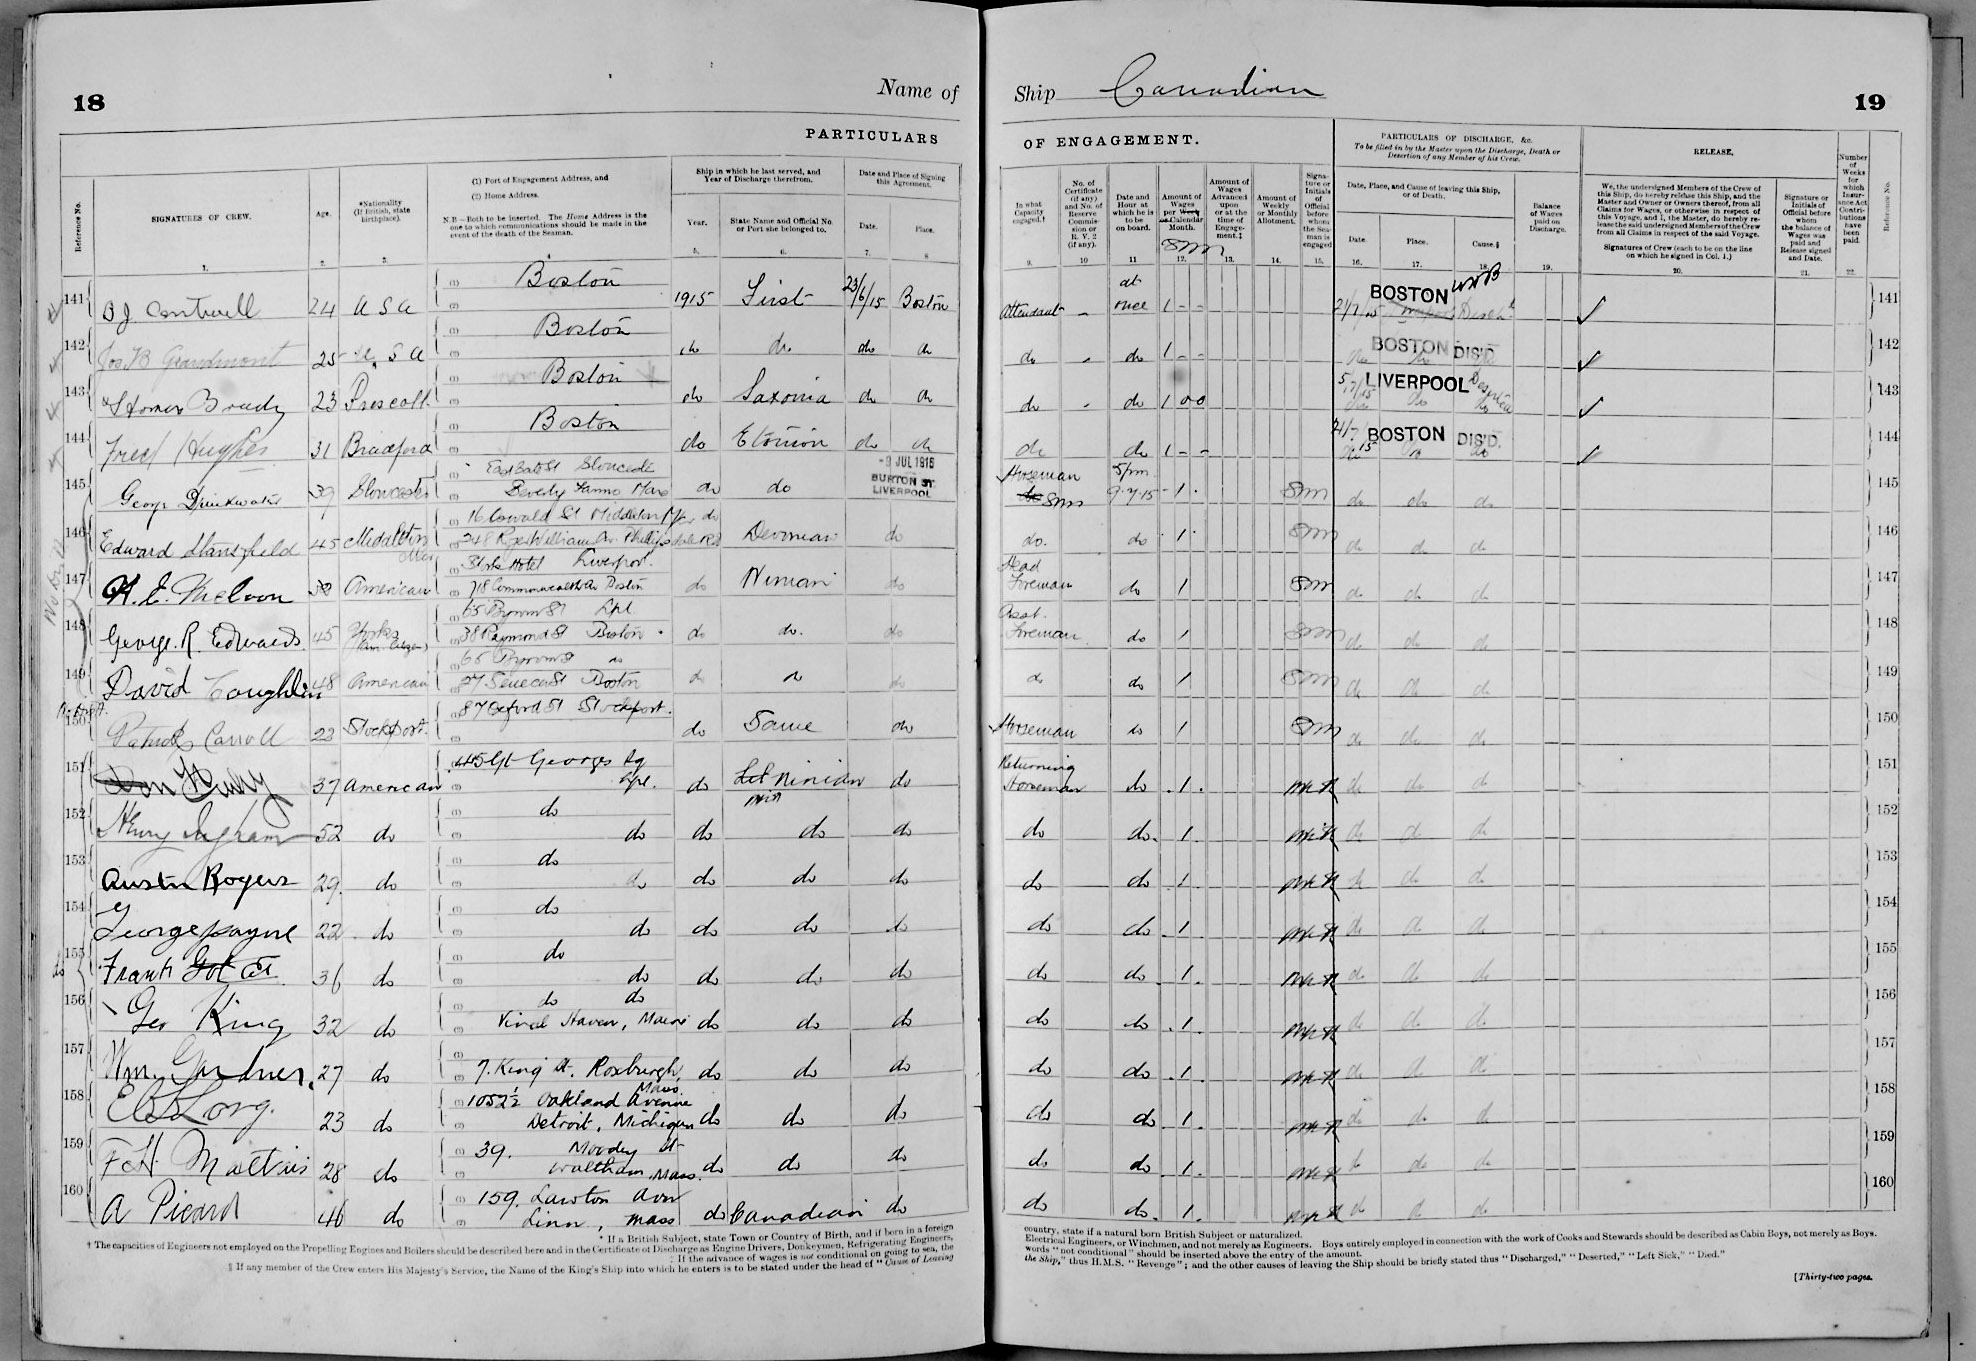 18
Name of
PARTICULARS
Reference No.
SIGNATURES OF CREW.
Age.
*Nationality (If British, state birthplace).
(1) Port of Engagement Address, and
(2) Home Address.
N.B.—Both to be inserted. The Home Address is the one to which communications should be made in the event of the death of the Seaman.
Ship in which he last served, and Year of Discharge therefrom.
Year.
State Name and Official No. or Port she belonged to.
Date and Place of Signing this Agreement.
Date.
Place.
1. 2. 3. 4 5. 6. 7. 8
141 24 U S A Boston 1915 First 23/6/15 Boston
142 25 U S A Boston do do do do
143 Brady 23 Prescott Boston do Saxonia do do
144 Fred Hughes 31 Bradford Boston do do do
145 George Drinkwater 39 Gloucester do do
JUL 1915
BURTON ST
LIVERPOOL
146 Edward Stansfield 45 Middleton Devonian do
147 American Hotel Liverpool.
718 Commonwealth Av Boston do do
148 George. R. Edwards 45 Yorks 65 Byrom St Lpl
38 Raymond St Boston do do. do
149 David Coughlin 48 American 65 Byrom St do
27 Seneca St Boston do do do
150 Patrick Carroll 23 Stockport. 87 Oxford St Stockport. do Same do
151 37 American 45 Gt Georges Sq
Lpl. do Ninian do
152 Henry Ingram 52 do do
do do do do
153 Austin Rogers 29. do do
do do do do
154 George Payne 22. do do
do do do do
155 Frank 36 do do
do do do do
156 Geo King 32 do do do
Vinal Haven, Maine do do do
157 Wm. Gardner. 27 do 7. King St. Roxburgh, Mass. do do do
158 Long. 23 do 1052½ Oakland Avenue
Detroit, Michigan do do do
159 F H. 28 do 39. Moody St
Waltham, Mass. do do do
160 A Picard 46 do 159. Lawton Aver
Linn, Mass do Canadian do
* If a British Subject, state Town or Country of Birth, and if born in a foreign
† The capacities of Engineers not employed on the Propelling Engines and Boilers should be described here and in the Certificate of Discharge as Engine Drivers, Donkeymen, Refrigerating Engineers,
‡ If the advance of wages is not conditional on going to sea, the
§ If any member of the Crew enters His Majesty's Service, the Name of the King's Ship into which he enters is to be stated under the head of "Cause of Leaving
Ship Canadian
19
OF ENGAGEMENT.
PARTICULARS OF DISCHARGE, &c.
To be filled in by the Master upon the Discharge, Death or Desertion of any Member of his Crew.
RELEASE.
In what Capacity engaged.†
No. of Certificate (if any) and No. of Reserve Commission or R. V. 2 (if any).
Date and Hour at which he is to be on board.
Amount of Wages per Week or Calendar Month.
Amount of Wages Advanced upon or at the time of Engagement.‡
Amount of Weekly or Monthly Allotment.
Signature or Initials of Official before whom the Seaman is engaged
Date, Place, and Cause of leaving this Ship, or of Death.
Date.
Place.
Cause.§
Balance of Wages paid on Discharge.
We, the undersigned Members of the Crew of this Ship, do hereby release this Ship, and the Master and Owner or Owners thereof, from all Claims for Wages, or otherwise in respect of this Voyage, and I, the Master, do hereby release the said undersigned Members of the Crew from all Claims in respect of the said Voyage.
Signatures of Crew (each to be on the line on which he signed in Col. 1.)
Signature or Initials of Official before whom the balance of Wages was paid and Release signed and Date.
Number of Weeks for which Insurance Act Contributions have been paid.
Reference No.
9. 10 11 12. 13. 14. 15. 16. 17. 18. 19. 20. 21. 22.
Attendant - at once 1 - - 21/7/15 BOSTON Disch 141
do - do 1 - - BOSTON DIS'D. 142
do - do 1 0 0 5/7/15 LIVERPOOL Deserted 143
do do 1 - - 21/7/15 BOSTON DIS'D. 144
Horseman 5pm 9.7.15 1 SM do do do 145
do. do 1 SM do do do 146
Head Foreman do 1 SM do do do 147
Asst. Foreman do 1 SM do do do 148
do do 1 SM do do do 149
Horseman do 1 SM do do do 150
Returning Horseman do 1 do do do 151
do do 1 do do do 152
do do 1 do do do 153
do do 1 do do do 154
do do 1 do do do 155
do do 1 do do do 156
do do 1 do do do 157
do do 1 do do do 158
do do 1 do do do 159
do do 1 do do do 160
country, state if a natural born British Subject or naturalized.
Electrical Engineers, or Winchmen, and not merely as Engineers. Boys entirely employed in connection with the work of Cooks and Stewards should be described as Cabin Boys, not merely as Boys.
words "not conditional" should be inserted above the entry of the amount.
the Ship," thus H.M.S. "Revenge"; and the other causes of leaving the Ship should be briefly stated thus "Discharged," "Deserted," "Left Sick," "Died."
[Thirty-two pages.